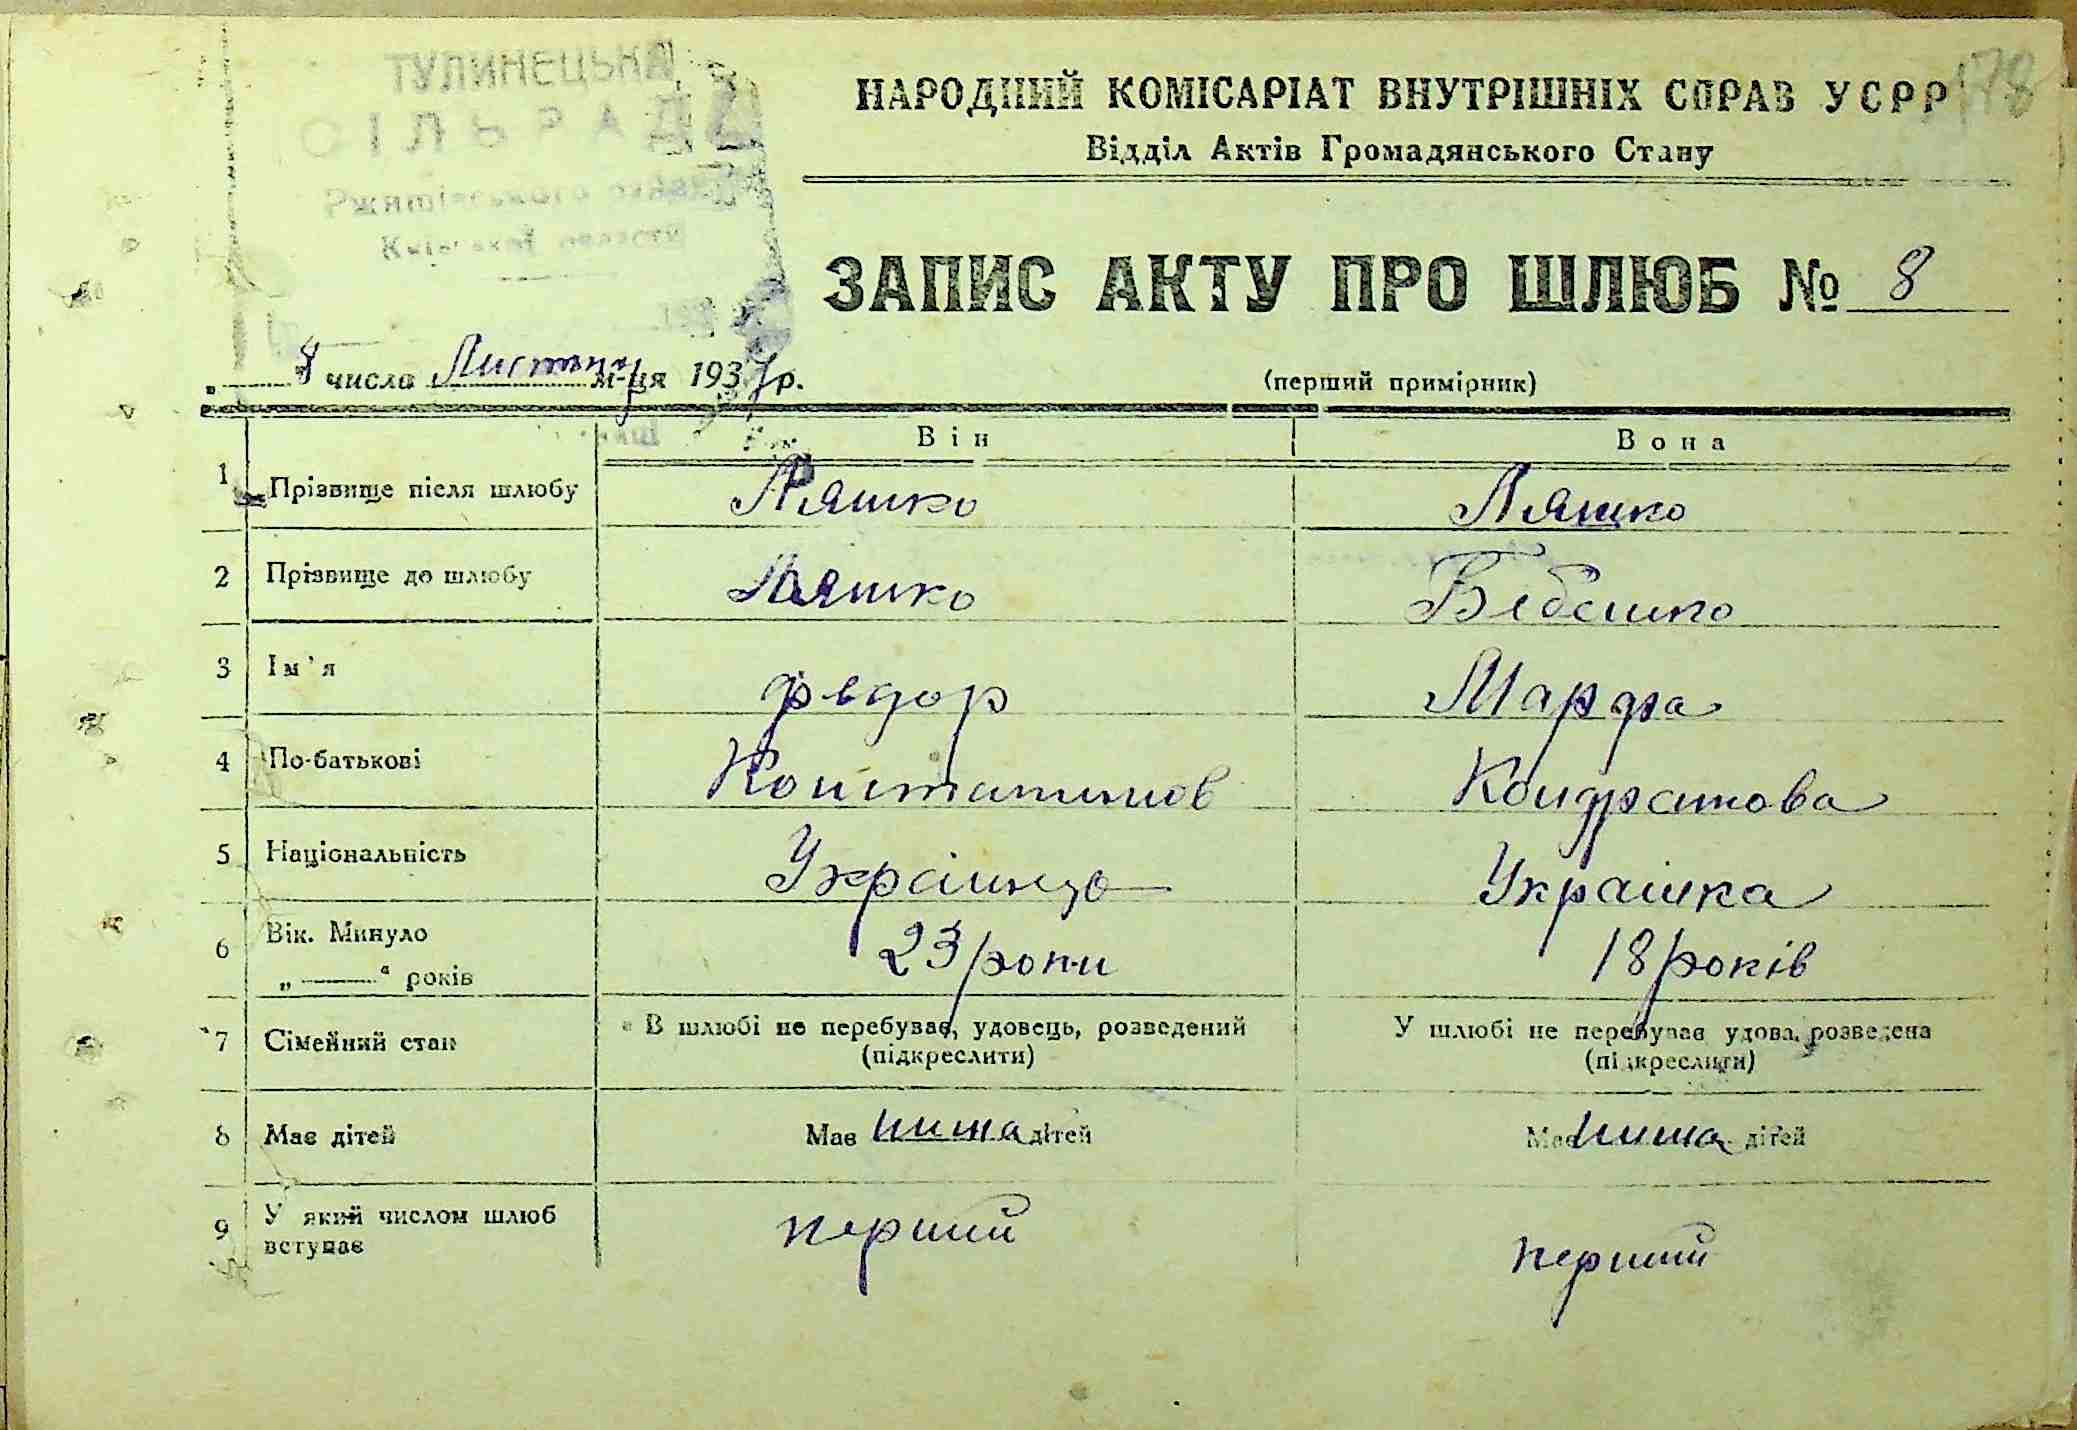 178
ТУЛИНЕЦЬКА
СІЛЬРАДА
Ржищівського
Київської області
НАРОДНИЙ КОМІСАРІАТ ВНУТРІШНІХ СПРАВ УСРР
Відділ Актів Громадянського Стану
ЗАПИС АКТУ ПРО ШЛЮБ № 8
8 числа Листопа м-ця 1937 р.
(перший примірник)
Він Вона
1 Прізвище після шлюбу Ляшко Ляшко
2 Прізвище до шлюбу Ляшко Бебешко
3 Ім'я Федор Марфа
4 По-батькові Константинов Кондратова
5 Національність Українць Українка
6 Вік. Минуло „ “ років 23 роки 18 років
7 Сімейний стан В шлюбі не перебуває, удовець, розведений (підкреслити) У шлюбі не перебуває удова, розведена (підкреслити)
8 Має дітей Має нима дітей Має нима дітей
9 У який числом шлюб вступає перший перший